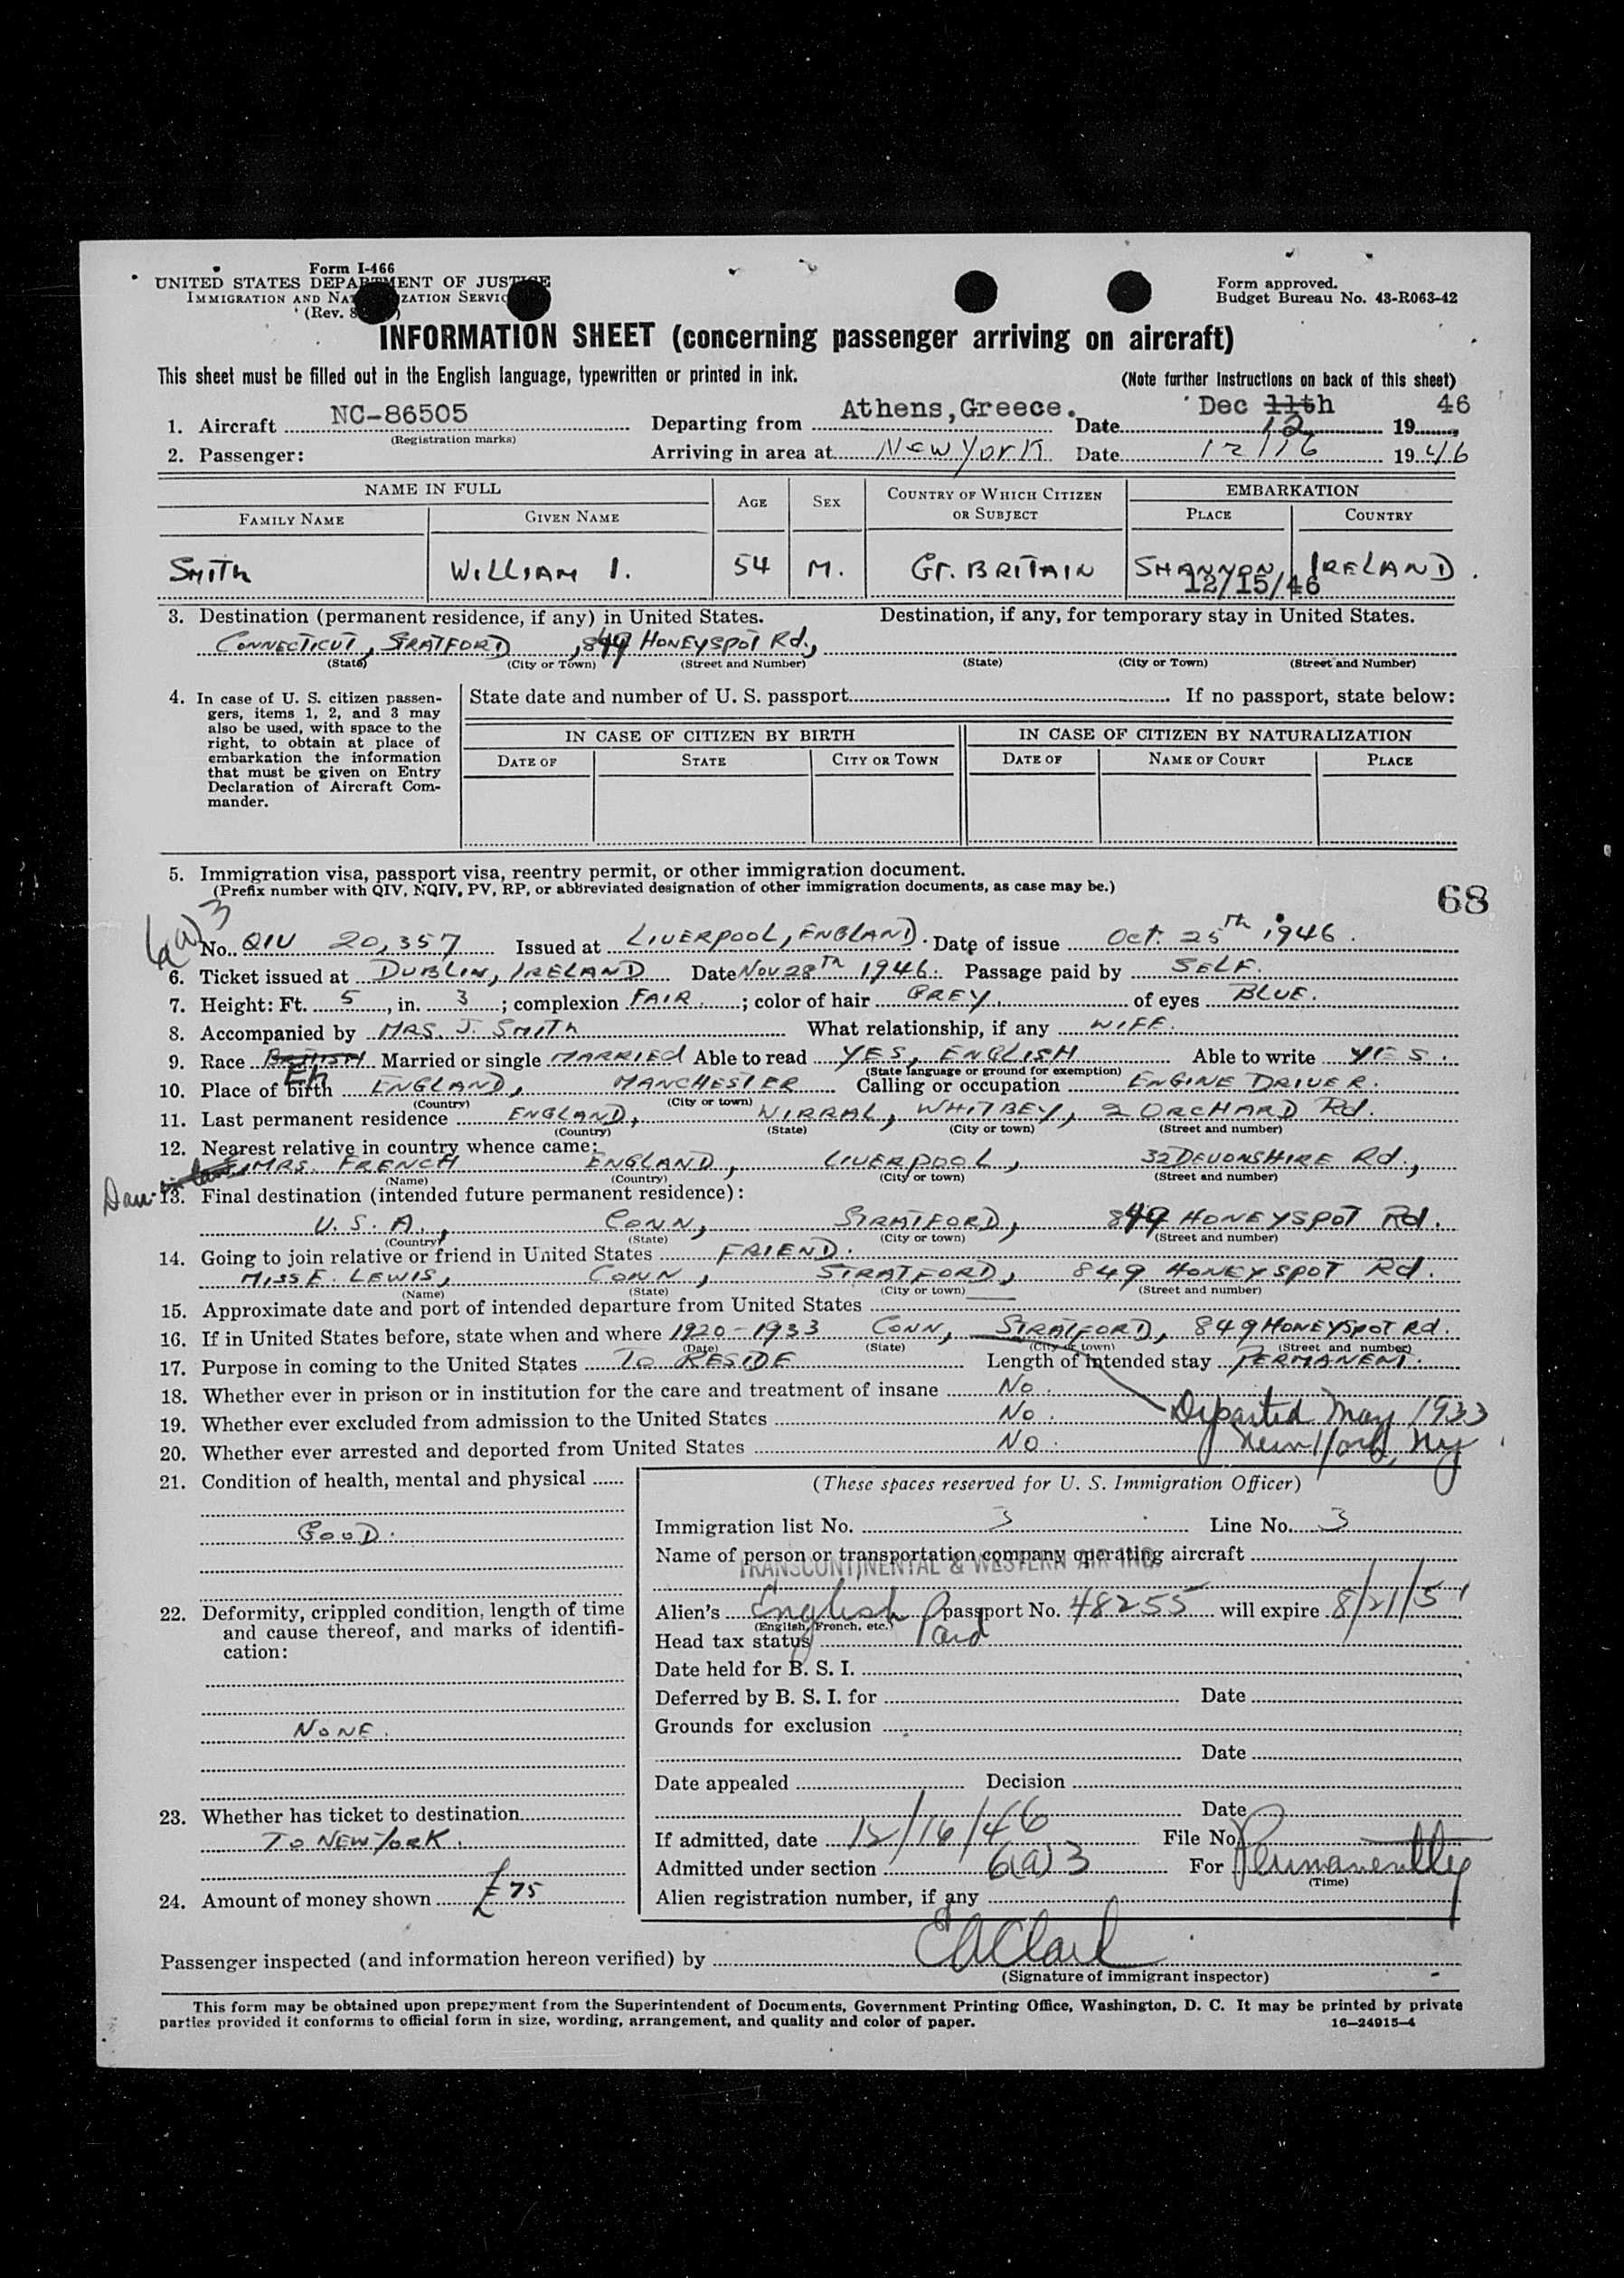 Form I-466
UNITED STATES DEPARTMENT OF JUSTICE
IMMIGRATION AND NATURALIZATION SERVICE
(Rev. 8
Form approved.
Budget Bureau No. 43-R063-42
INFORMATION SHEET (concerning passenger arriving on aircraft)
This sheet must be filled out in the English language, typewritten or printed in ink.
(Note further instructions on back of this sheet)
1. Aircraft NC-86505 Departing from Athens, Greece. Date Dec 11th 12 1946
(Registration marks)
2. Passenger: Arriving in area at New York Date 12/16 1946
NAME IN FULL AGE SEX COUNTRY OF WHICH CITIZEN OR SUBJECT EMBARKATION
FAMILY NAME GIVEN NAME PLACE COUNTRY
SMITH WILLIAM I. 54 M. GT. BRITAIN SHANNON, IRELAND.
12/15/46
3. Destination (permanent residence, if any) in United States. Destination, if any, for temporary stay in United States.
CONNECTICUT, STRATFORD, 849 HONEYSPOT Rd.,
(State) (City or Town) (Street and Number) (State) (City or Town) (Street and Number)
4. In case of U. S. citizen passen-
gers, items 1, 2, and 3 may
also be used, with space to the
right, to obtain at place of
embarkation the information
that must be given on Entry
Declaration of Aircraft Com-
mander.
State date and number of U. S. passport If no passport, state below:
IN CASE OF CITIZEN BY BIRTH IN CASE OF CITIZEN BY NATURALIZATION
DATE OF STATE CITY OR TOWN DATE OF NAME OF COURT PLACE
5. Immigration visa, passport visa, reentry permit, or other immigration document.
(Prefix number with QIV, NQIV, PV, RP, or abbreviated designation of other immigration documents, as case may be.)
68
6(a)3
No. QIV 20,357 Issued at LIVERPOOL, ENGLAND. Date of issue Oct. 25th 1946.
6. Ticket issued at DUBLIN, IRELAND Date Nov 28th 1946. Passage paid by SELF.
7. Height: Ft. 5, in. 3; complexion FAIR.; color of hair GREY. of eyes BLUE.
8. Accompanied by MRS. J. SMITH What relationship, if any WIFE.
9. Race BRITISH Married or single MARRIED Able to read YES, ENGLISH Able to write YES.
Eh (State language or ground for exemption)
10. Place of birth ENGLAND, MANCHESTER Calling or occupation ENGINE DRIVER.
(Country) (City or town)
11. Last permanent residence ENGLAND, WIRRAL, WHITBEY, 2 ORCHARD Rd.
(Country) (State) (City or town) (Street and number)
12. Nearest relative in country whence came:
MRS. FRENCH ENGLAND, LIVERPOOL, 32 DEVONSHIRE Rd.,
(Name) (Country) (City or town) (Street and number)
Dau-
13. Final destination (intended future permanent residence):
U.S.A., CONN, STRATFORD, 849 HONEYSPOT Rd.
(Country) (State) (City or town) (Street and number)
14. Going to join relative or friend in United States FRIEND.
MISS E. LEWIS, CONN, STRATFORD, 849 HONEYSPOT Rd.
(Name) (State) (City or town) (Street and number)
15. Approximate date and port of intended departure from United States
16. If in United States before, state when and where 1920-1933 CONN, STRATFORD, 849 HONEYSPOT Rd.
(Date) (State) (City or town) (Street and number)
17. Purpose in coming to the United States TO RESIDE Length of intended stay PERMANENT.
18. Whether ever in prison or in institution for the care and treatment of insane No.
19. Whether ever excluded from admission to the United States No. Departed May 1933
20. Whether ever arrested and deported from United States No. New York, Ny
21. Condition of health, mental and physical
GOOD.
22. Deformity, crippled condition, length of time
and cause thereof, and marks of identifi-
cation:
NONE.
23. Whether has ticket to destination
TO NEW YORK.
24. Amount of money shown £75
(These spaces reserved for U. S. Immigration Officer)
Immigration list No. 3 Line No. 3
Name of person or transportation company operating aircraft
TRANSCONTINENTAL & WESTERN AIR INC.
Alien's English passport No. 48255 will expire 8/21/51
(English, French, etc.)
Head tax status Paid
Date held for B. S. I.
Deferred by B. S. I. for Date
Grounds for exclusion
Date
Date appealed Decision
Date
If admitted, date 12/16/46 File No.
Admitted under section 6(a)3 For Permanently
(Time)
Alien registration number, if any
Passenger inspected (and information hereon verified) by EAClark
(Signature of immigrant inspector)
This form may be obtained upon prepayment from the Superintendent of Documents, Government Printing Office, Washington, D. C. It may be printed by private
parties provided it conforms to official form in size, wording, arrangement, and quality and color of paper.
16—24915-4